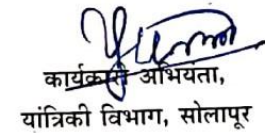 कार्यकारी अभियंता,
यांत्रिकी विभाग, सोलापूर